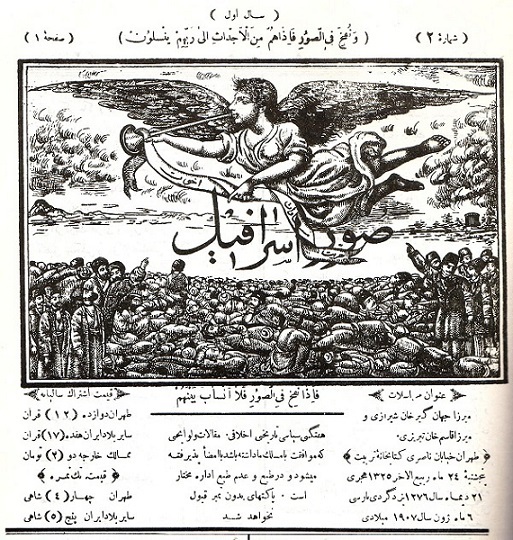 ( سال اول )
( شماره ۲ ) ( وَ نُفِخَ فِی الصّورِ فَاِذاهُم مِنَ الْاَجداثِ اِلیٰ رَبِّهِم یَنسِلُونَ ) ( صفحهٔ ۱ )
صور اسرافیل
عنوان مراسلات
میرزا جهان گیر خان شیرازی و
میرزا قاسم خان تبریزی
﴿ طهران خیابان ناصری کتابخانهٔ تربیت ﴾
۲۴ ماه ربیع الاخر ۱۳۲۵ هجری
۲۱ دیماه سال ۱۲۷۶ یزدگردی پارسی
۶ ماه ژون سال ۱۹۰۷ میلادی
فَاِذا نُفِخَ فِی الصّورِ فَلا اَنسابَ بَیْنَهُمْ
هفتگی سیاسی تاریخی اخلاقی مقالات ولوایحی
که موافقت بامسلک ما داشته باشد با امضا پذیرفته
میشود و در طبع و عدم طبع اداره مختار
است ۰ پاکتهای بدون تمبر قبول
نخواهد شد
قیمت اشتراک سالیانه
طهران دوازده (۱۲) قران
سایر بلاد ایران هفده (۱۷) قران
ممالک خارجه دو (۲) تومان
﴿ قیمت تک نمره ﴾
طهران چهار (۴) شاهی
سایر بلاد ایران پنج (۵) شاهی